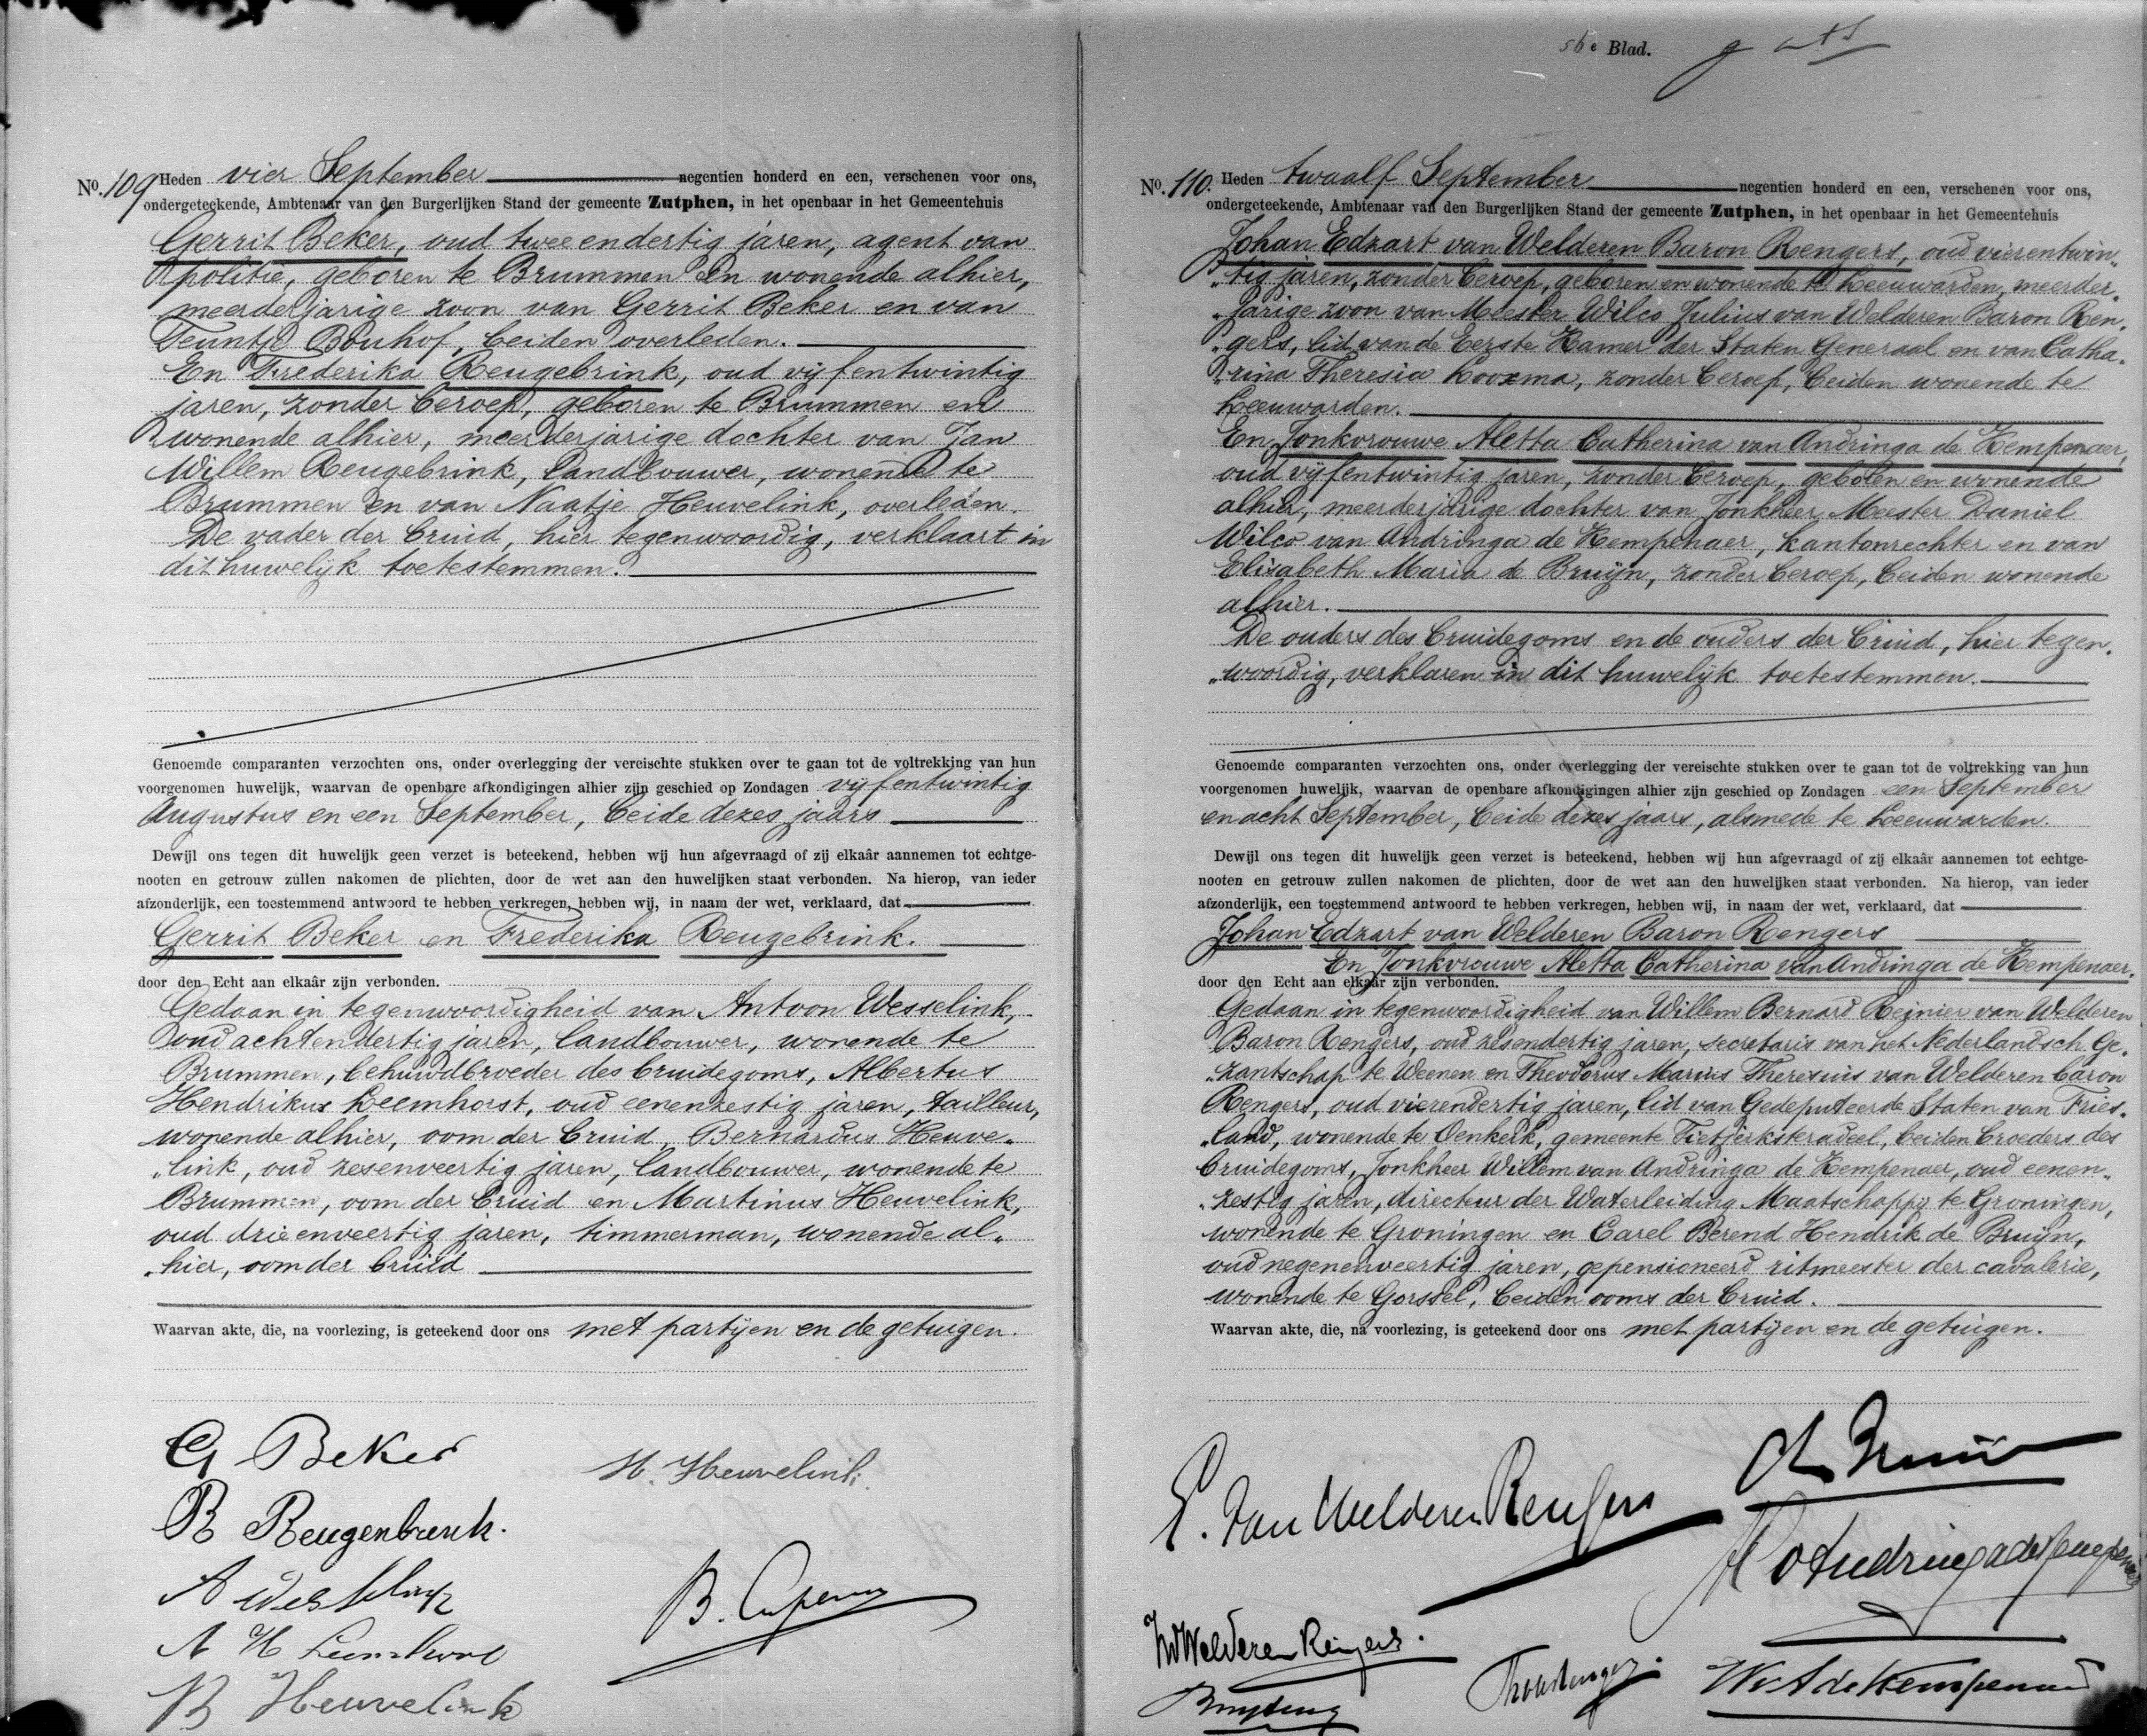 No. 109 Heden vier September negentien honderd en een, verschenen voor ons,
ondergeteekende, Ambtenaar van den Burgerlijken Stand der gemeente Zutphen, in het openbaar in het Gemeentehuis
Gerrit Beker, oud twee en dertig jaren, agent van
politie, geboren te Brummen en wonende alhier,
meerderjarige zoon van Gerrit Beker en van
Teuntje Bouhof, beiden overleden.
En Frederika Reugebrink, oud vijfentwintig
jaren, zonder beroep, geboren te Brummen en
wonende alhier, meerderjarige dochter van Jan
Willem Reugebrink, landbouwer, wonende te
Brummen en van Naatje Heuvelink, overleden.
De vader der bruid, hier tegenwoordig, verklaart in
dit huwelijk toetestemmen.
Genoemde comparanten verzochten ons, onder overlegging der vereischte stukken over te gaan tot de voltrekking van hun
voorgenomen huwelijk, waarvan de openbare afkondigingen alhier zijn geschied op Zondagen vijfentwintig
Augustus en een September, beide dezes jaars
Dewijl ons tegen dit huwelijk geen verzet is beteekend, hebben wij hun afgevraagd of zij elkaâr aannemen tot echtge-
nooten en getrouw zullen nakomen de plichten, door de wet aan den huwelijken staat verbonden. Na hierop, van ieder
afzonderlijk, een toestemmend antwoord te hebben verkregen, hebben wij, in naam der wet, verklaard, dat
Gerrit Beker en Frederika Reugebrink.
door den Echt aan elkaâr zijn verbonden.
Gedaan in tegenwoordigheid van Antoon Wesselink,
oud achtendertig jaren, landbouwer, wonende te
Brummen, behuwdbroeder des bruidegoms, Albertus
Hendrikus Leemhorst, oud eenenzestig jaren, tailleur,
wonende alhier, oom der bruid, Bernardus Heuve„
„link, oud zesenveertig jaren, landbouwer, wonende te
Brummen, oom der bruid en Martinus Heuvelink,
oud drieenveertig jaren, timmerman, wonende al„
„hier, oom der bruid
Waarvan akte, die, na voorlezing, is geteekend door ons met partijen en de getuigen.
G Beker
H. Heuvelink
R Reugenbrink.
A Wesselink
B. Cuperus
A H Leemhorst
B Heuvelink
56e Blad.
No. 110. Heden twaalf September negentien honderd en een, verschenen voor ons,
ondergeteekende, Ambtenaar van den Burgerlijken Stand der gemeente Zutphen, in het openbaar in het Gemeentehuis
Johan Edzart van Welderen Baron Rengers, oud vierentwin„
„tig jaren, zonder beroep, geboren en wonende te Leeuwarden, meerder„
„jarige zoon van Meester Wilco Julius van Welderen Baron Ren„
„gers, lid van de Eerste Kamer der Staten Generaal en van Catha„
„rina Theresia Looxma, zonder beroep, beiden wonende te
Leeuwarden.
En Jonkvrouwe Aletta Catherina van Andringa de Kempenaer,
oud vijfentwintig jaren, zonder beroep, geboren en wonende
alhier, meerderjarige dochter van Jonkheer Meester Daniel
Wilco van Andringa de Kempenaer, kantonrechter en van
Elisabeth Maria de Bruijn, zonder beroep, beiden wonende
alhier.
De ouders des bruidegoms en de ouders der bruid, hier tegen„
„woordig, verklaren in dit huwelijk toetestemmen.
Genoemde comparanten verzochten ons, onder overlegging der vereischte stukken over te gaan tot de voltrekking van hun
voorgenomen huwelijk, waarvan de openbare afkondigingen alhier zijn geschied op Zondagen een September
en acht September, beide dezes jaars, alsmede te Leeuwarden.
Dewijl ons tegen dit huwelijk geen verzet is beteekend, hebben wij hun afgevraagd of zij elkaâr aannemen tot echtge-
nooten en getrouw zullen nakomen de plichten, door de wet aan den huwelijken staat verbonden. Na hierop, van ieder
afzonderlijk, een toestemmend antwoord te hebben verkregen, hebben wij, in naam der wet, verklaard, dat
Johan Edzart van Welderen Baron Rengers
En Jonkvrouwe Aletta Catherina van Andringa de Kempenaer.
door den Echt aan elkaâr zijn verbonden.
Gedaan in tegenwoordigheid van Willem Bernard Reinier van Welderen
Baron Rengers, oud zesendertig jaren, secretaris van het Nederlandsch Ge„
„zantschap te Weenen en Theodorus Marius Theresius van Welderen baron
Rengers, oud vierendertig jaren, lid van Gedeputeerde Staten van Fries„
„land, wonende te Oenkerk, gemeente Tietjerksteradeel, beiden broeders des
bruidegoms, Jonkheer Willem van Andringa de Kempenaer, oud eenen„
„zestig jaren, directeur der Waterleiding Maatschappij te Groningen,
wonende te Groningen en Carel Berend Hendrik de Bruijn,
oud negenenveertig jaren, gepensioneerd ritmeester der cavalerie,
wonende te Gorssel, beiden ooms der bruid.
Waarvan akte, die, na voorlezing, is geteekend door ons met partijen en de getuigen.
E. van Welderen Rengers
v Andringa de Kempenaer
v Welderen Rengers.
W v A de Kempenaer